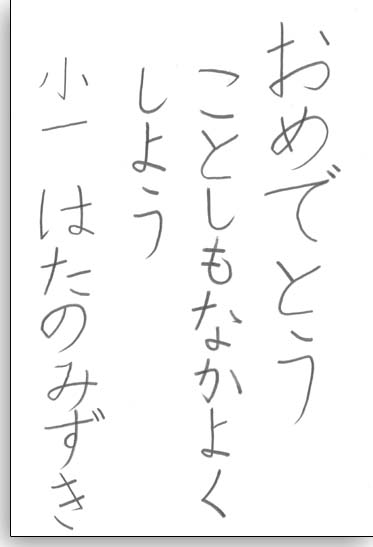 おめでとう
ことしもなかよく
しよう
小一 はたのみずき